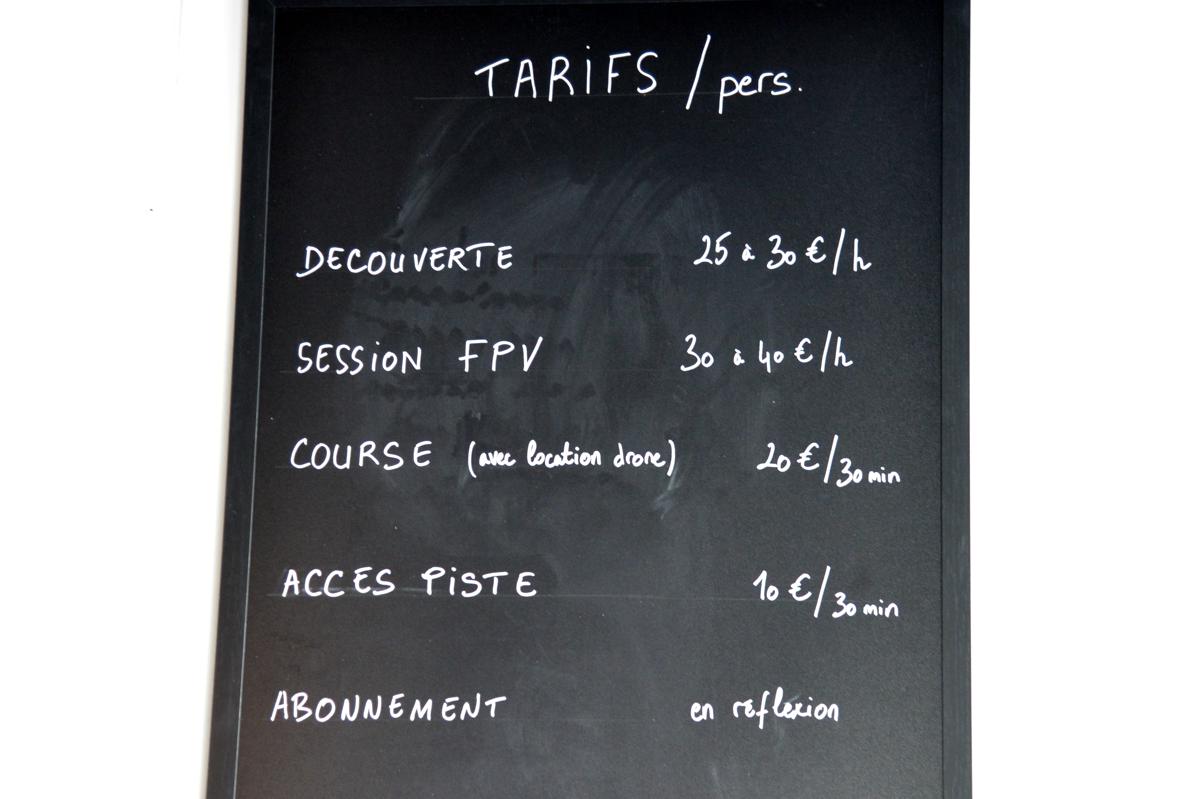 TARiFS / pers.
DECOUVERTE 25 à 30 € / h
SESSiON FPV 30 à 40 € / h
COURSE (avec location drone) 20 € / 30 min
ACCES PiSTE 10 € / 30 min
ABONNEMENT en réflexion